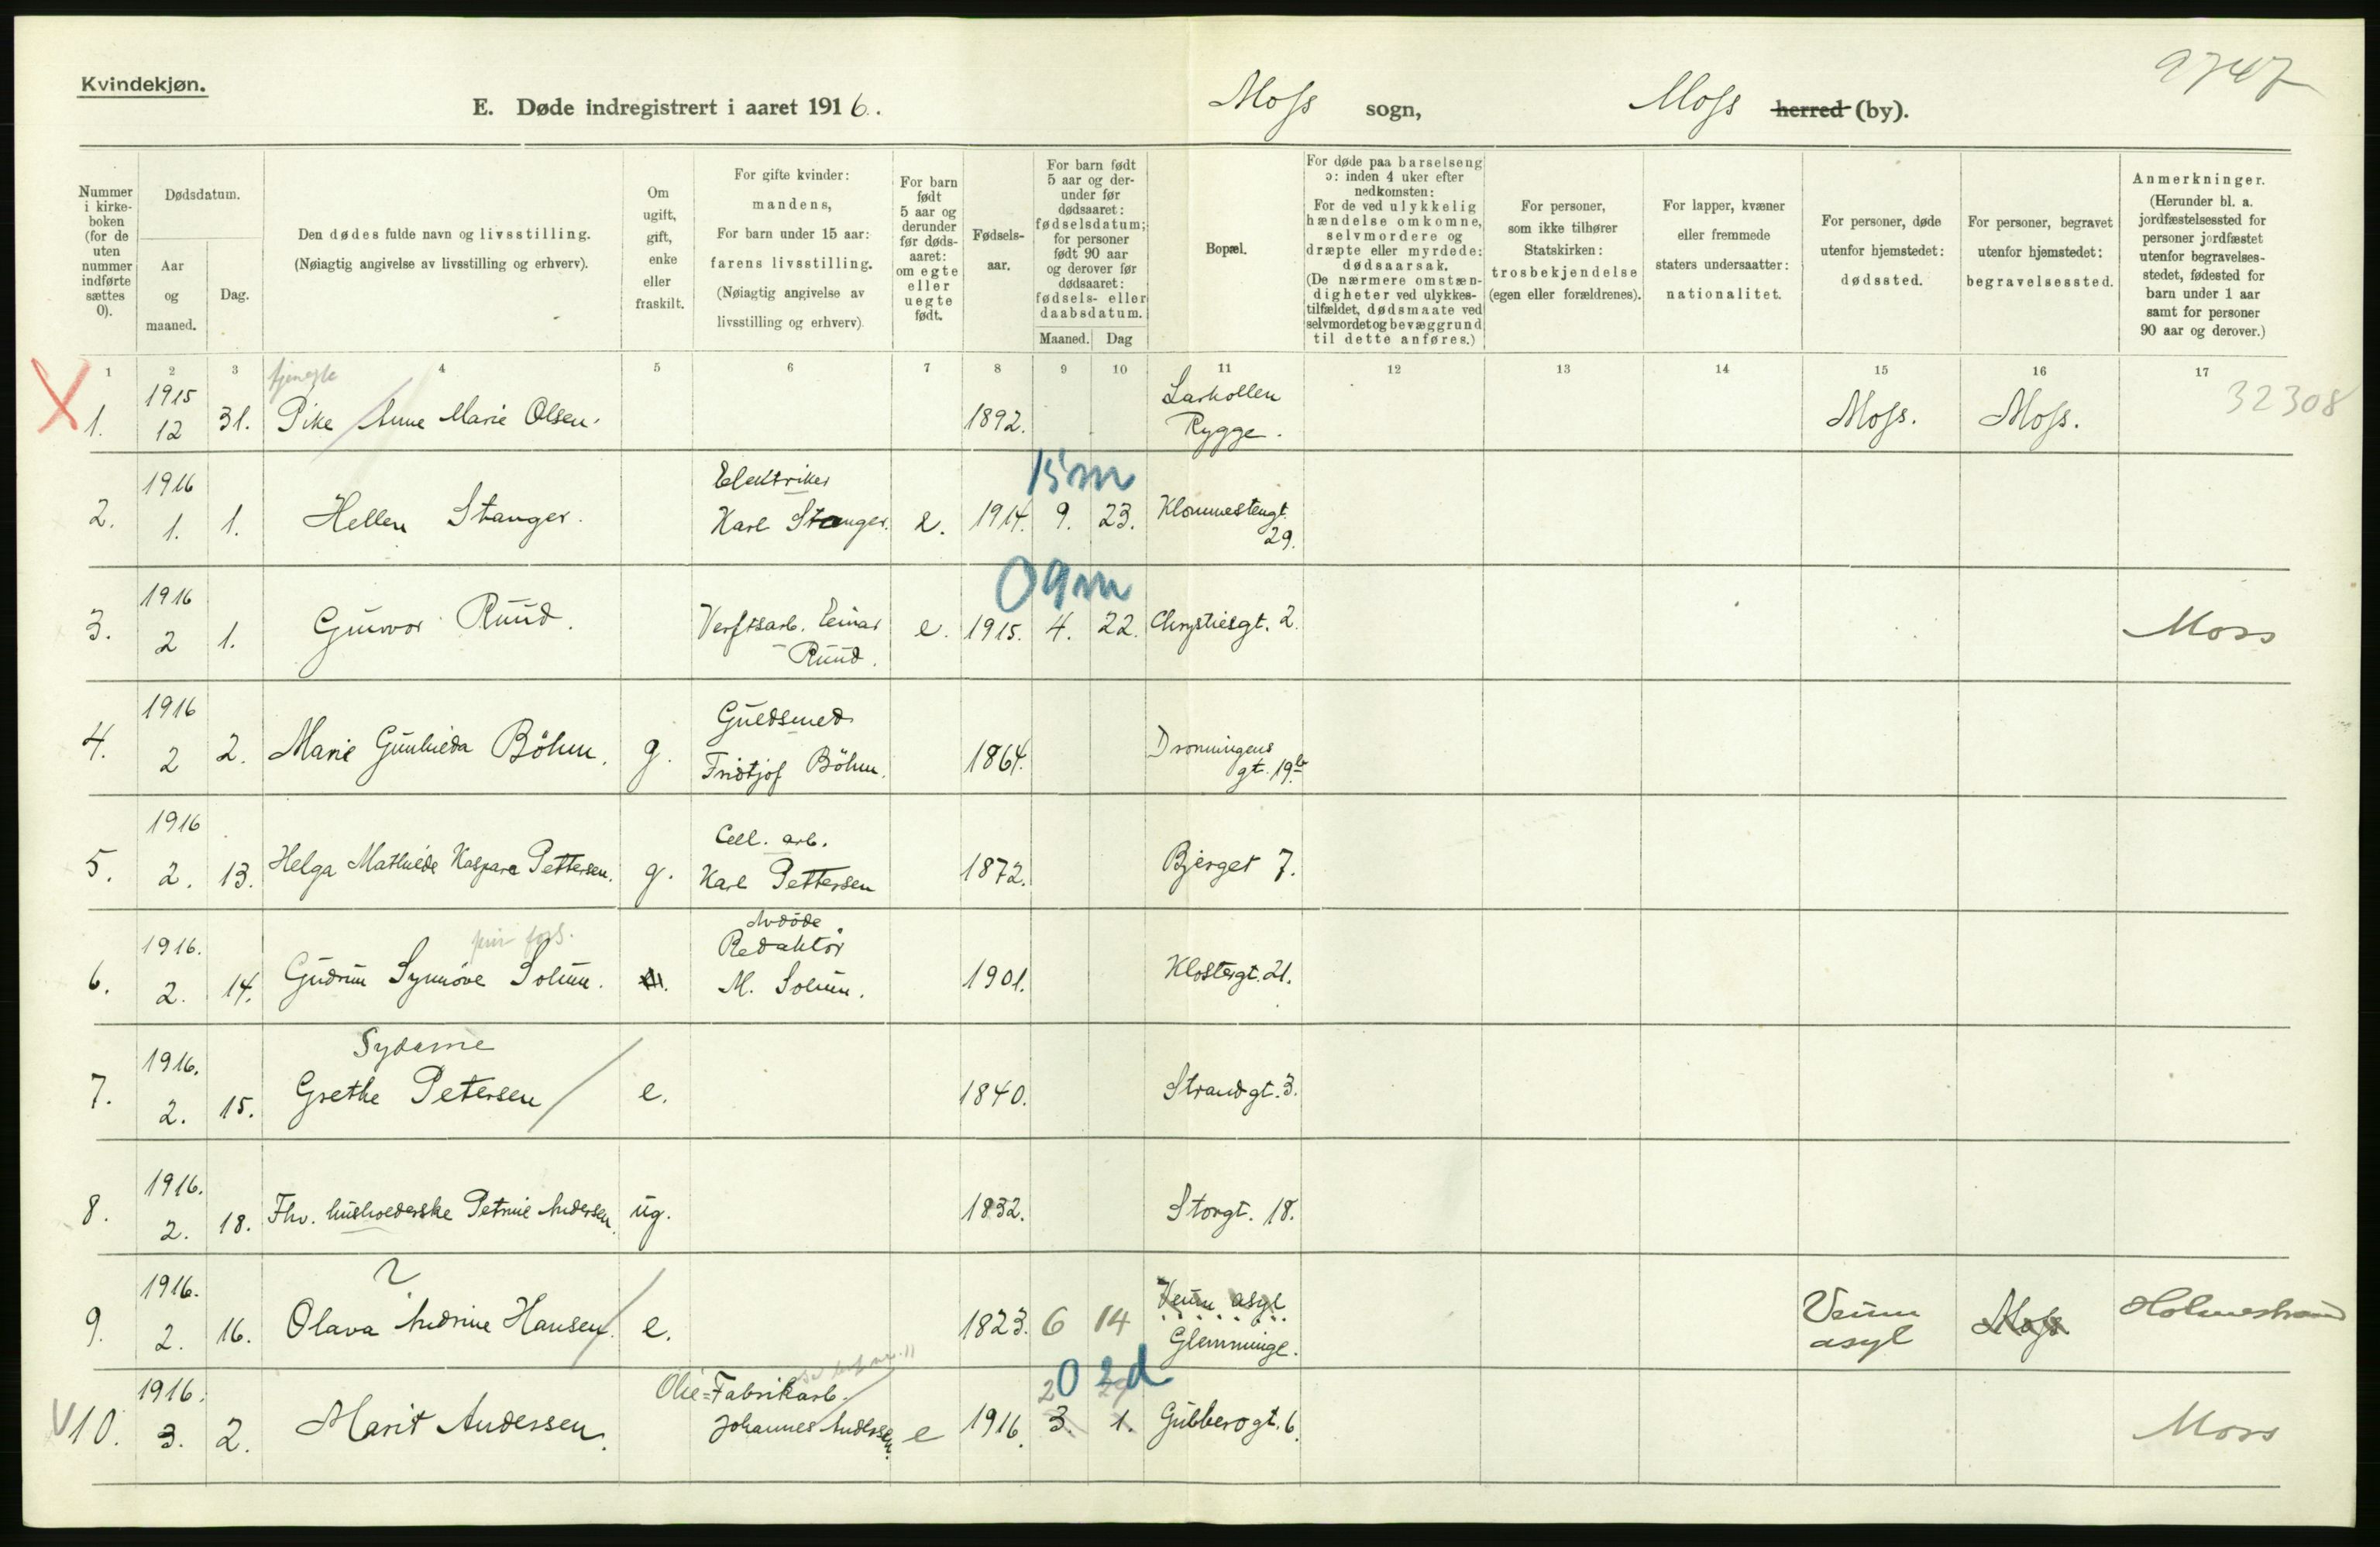 Kvindekjøn.
9747
E. Døde indregistrert i aaret 1916.
Moss sogn,
Moss herred (by).
Nummer i kirke-boken (for de uten nummer indførte sættes 0).
Dødsdatum.
Aar og maaned.
Dag.
Den dødes fulde navn og livsstilling.
(Nøiagtig angivelse av livsstilling og erhverv).
Om ugift, gift, enke eller fraskilt.
For gifte kvinder:
mandens,
For barn under 15 aar:
farens livsstilling.
(Nøiagtig angivelse av
livsstilling og erhverv).
For barn født 5 aar og derunder før døds-aaret: om egte eller uegte født.
Fødsels-aar.
For barn født 5 aar og der-under før dødsaaret: fødselsdatum; for personer født 90 aar og derover før dødsaaret: fødsels- eller daabsdatum.
Maaned.
Dag
Bopæl.
For døde paa barselseng
ɔ: inden 4 uker efter
nedkomsten:
For de ved ulykkelig
hændelse omkomne,
selvmordere og
dræpte eller myrdede:
dødsaarsak.
(De nærmere omstæn-
digheter ved ulykkes-
tilfældet, dødsmaate ved
selvmordet og bevæggrund
til dette anføres.)
For personer,
som ikke tilhører
Statskirken:
trosbekjendelse
(egen eller forældrenes).
For lapper, kvæner
eller fremmede
staters undersaatter:
nationalitet.
For personer, døde
utenfor hjemstedet:
dødssted.
For personer, begravet
utenfor hjemstedet:
begravelsessted.
Anmerkninger.
(Herunder bl. a.
jordfæstelsessted for
personer jordfæstet
utenfor begravelses-
stedet, fødested for
barn under 1 aar
samt for personer
90 aar og derover.)
1 2 3 4 5 6 7 8 9 10 11 12 13 14 15 16 17
X 1. 1915 12 31. Pike Anne Marie Olsen. 1892. Larkollen Rygge. Moss. Moss. 32308
2. 1916 1. 1. Hellen Stanger. Elektriker Karl Stanger. e. 1914. 9. 23. 15 m 29.
3. 1916 2 1. Gunvor Ruud. Verftsarb. Einar Ruud. e. 1915. 4. 22. 0 9 m Chrystiesgt. 2. Moss
4. 1916 2 2. Marie Gunhilda Böhm. g. Guldsmed Fridtjof Böhm. 1864. Dronningens gt. 19b
5. 1916 2. 13. Helga Mathilde Kaspara Pettersen. g. Cell. arb. Karl Pettersen 1872. Bjerget 7.
6. 1916. 2. 14. Gudrun Synnöve Solum. Avdöde Redaktör M. Solum. 1901. Klostergt. 21.
7. 1916. 2. 15. Sydame Grethe Petersen e. 1840. Strandgt. 3.
8. 1916. 2. 18. Fhv. husholderske Petrine Andersen ug. 1832. Storgt. 18.
9. 1916. 2. 16. ? Olava Andrine Hansen. e. 1823. 6 14 Veum asyl Glemminge. Veum asyl Moss Holmestrand
V 10. 1916. 3. 2. Marit Andersen. Olie=Fabrikarb. Johannes Andersen. e 1916. 3. 1. 2 29 0 2 d Gubberogt. 6. Moss